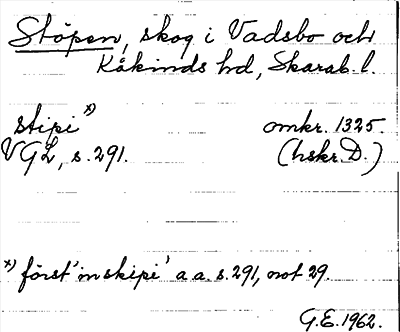 Stöpen, skog i Vadsbo och
Kåkinds hd, Skarab. l.
stipi x) omkr. 1325.
VGL, s. 291. (hskr. D.)
x) först 'in skipi' a a. s. 291, not 29.
G.E. 1962.